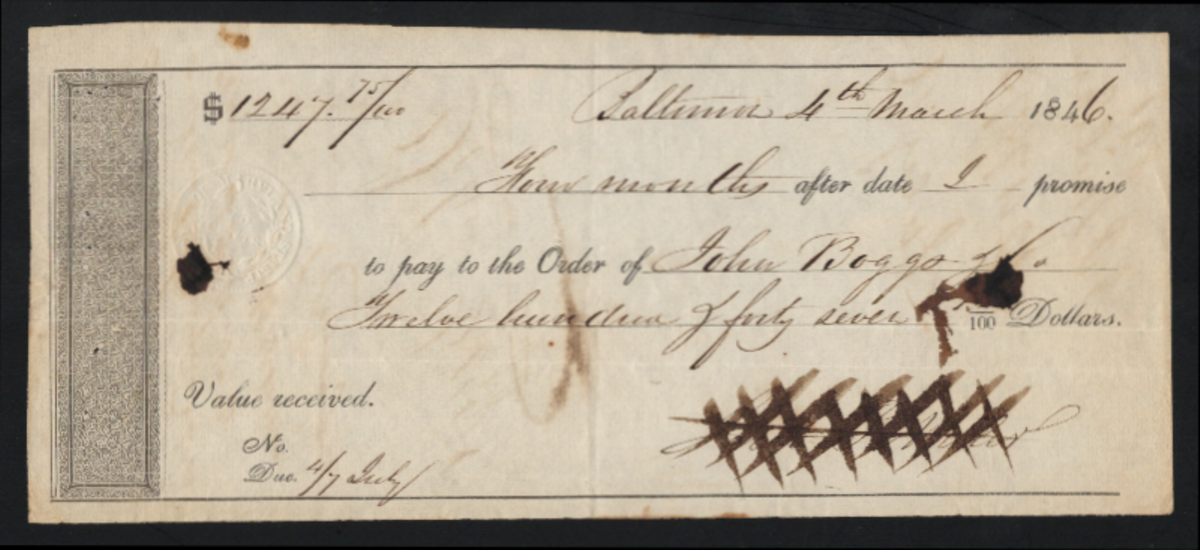 $1247.75/100 Baltimore 4th March 1846.
Four months after date I promise
to pay to the Order of John Boggs & Co
Twelve hundred & forty seven /100 Dollars.
Value received.
No.
Due. 4/7 July